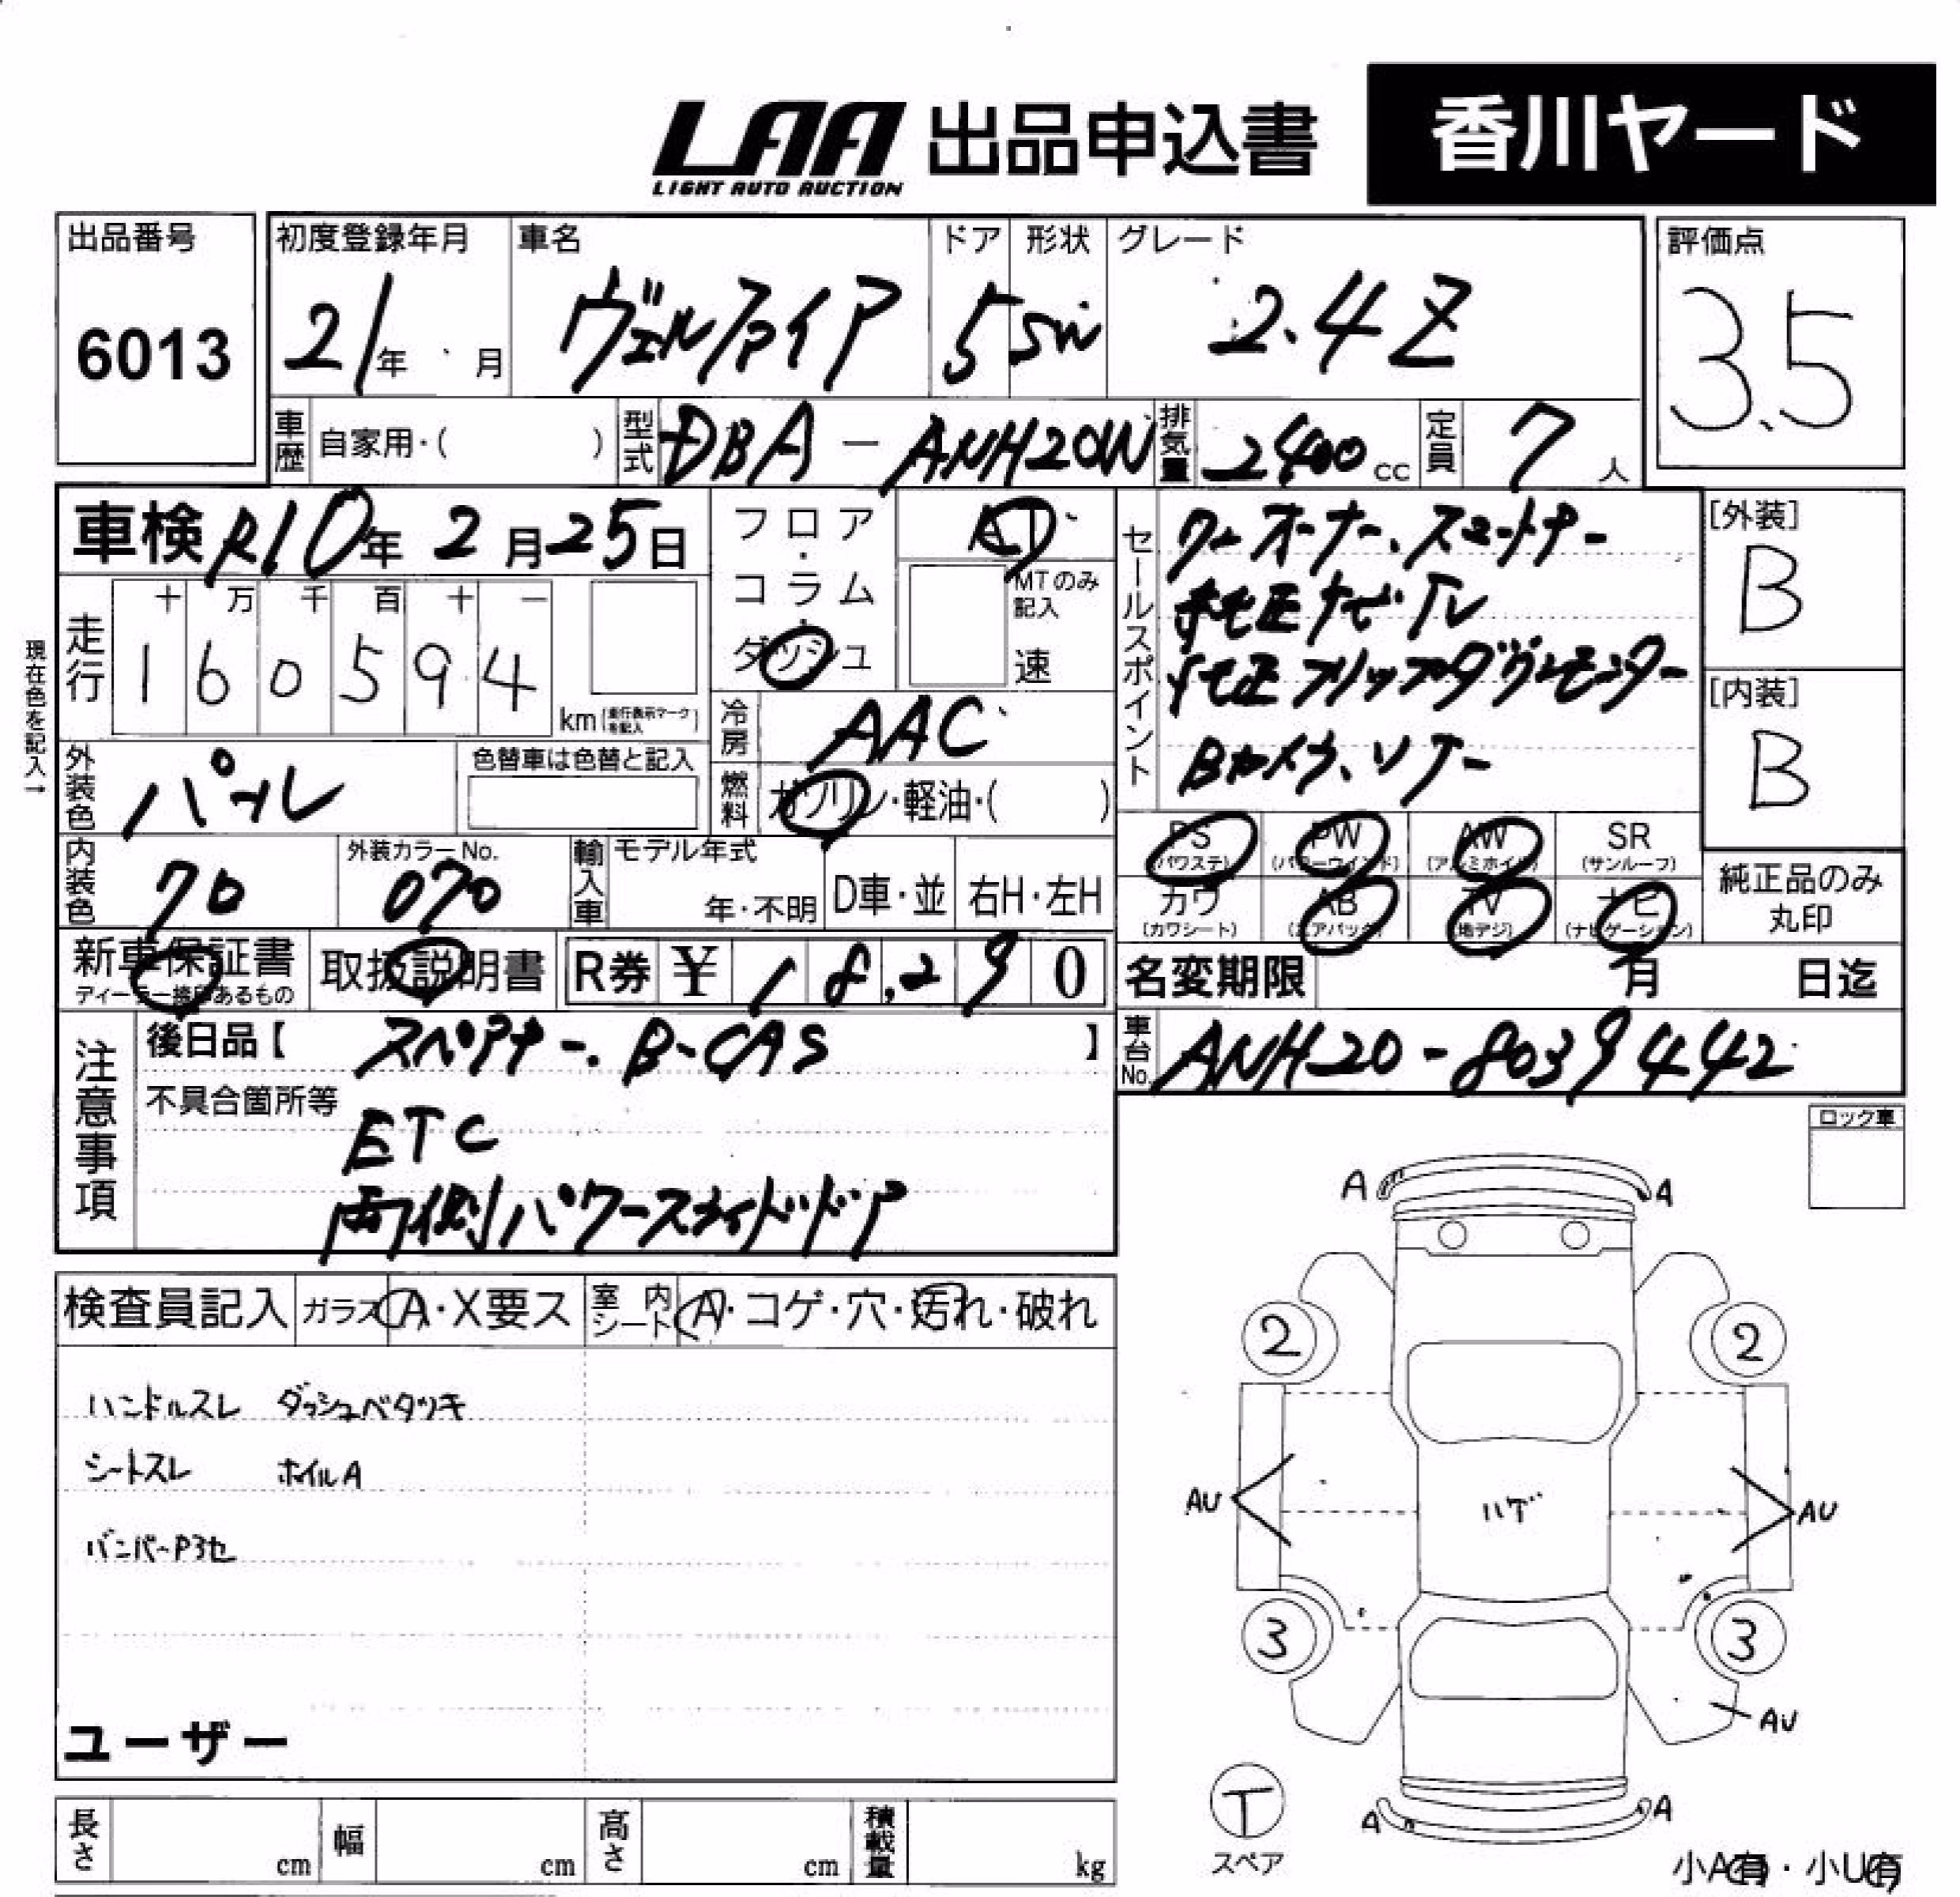 LAA 出品申込書 香川ヤード
LIGHT AUTO AUCTION
出品番号 6013
初度登録年月 21年 月
車名 ヴェルファイア
ドア 5
形状 SW
グレード 2.4Z
評価点 3.5
車歴 自家用・( )
型式 DBA-ANH20W
排気量 2400cc
定員 7人
車検 R10年 2月25日
フロア・コラム・ダッシュ
AT
MTのみ記入 速
セールスポイント
ワンオーナー、スマートキー
純正ナビ TV
純正フリップダウンモニター
Bカメラ、ソナー
[外装] B
[内装] B
現在色を記入→
走行 十 万 千 百 十 一
160594 km(走行表示マークを記入)
冷房 AAC
燃料 ガソリン・軽油・( )
外装色 パール
色替車は色替と記入
内装色 70
外装カラーNo. 070
輸入車 モデル年式 年・不明 D車・並 右H・左H
PS (パワステ) PW (パワーウインド) AW (アルミホイル) SR (サンルーフ)
カワ (カワシート) AB (エアバック) TV (地デジ) ナビ (ナビゲーション)
純正品のみ丸印
新車保証書 ディーラー捺印あるもの
取扱説明書
R券 ¥ 18,290
名変期限 月 日迄
車台No. ANH20-8039442
注意事項
後日品【 スペアキー. B-CAS 】
不具合箇所等
ETC
両側パワースライドドア
ロック車
検査員記入 ガラス A・X要ス 室内シート A・コゲ・穴・汚れ・破れ
ハンドルスレ ダッシュベタツキ
シートスレ ホイルA
バンパーP3セ
ユーザー
A A
2 2
AU ハゲ AU
3 3
AU
A A
T スペア
小A有・小U有
長さ cm 幅 cm 高さ cm 積載量 kg